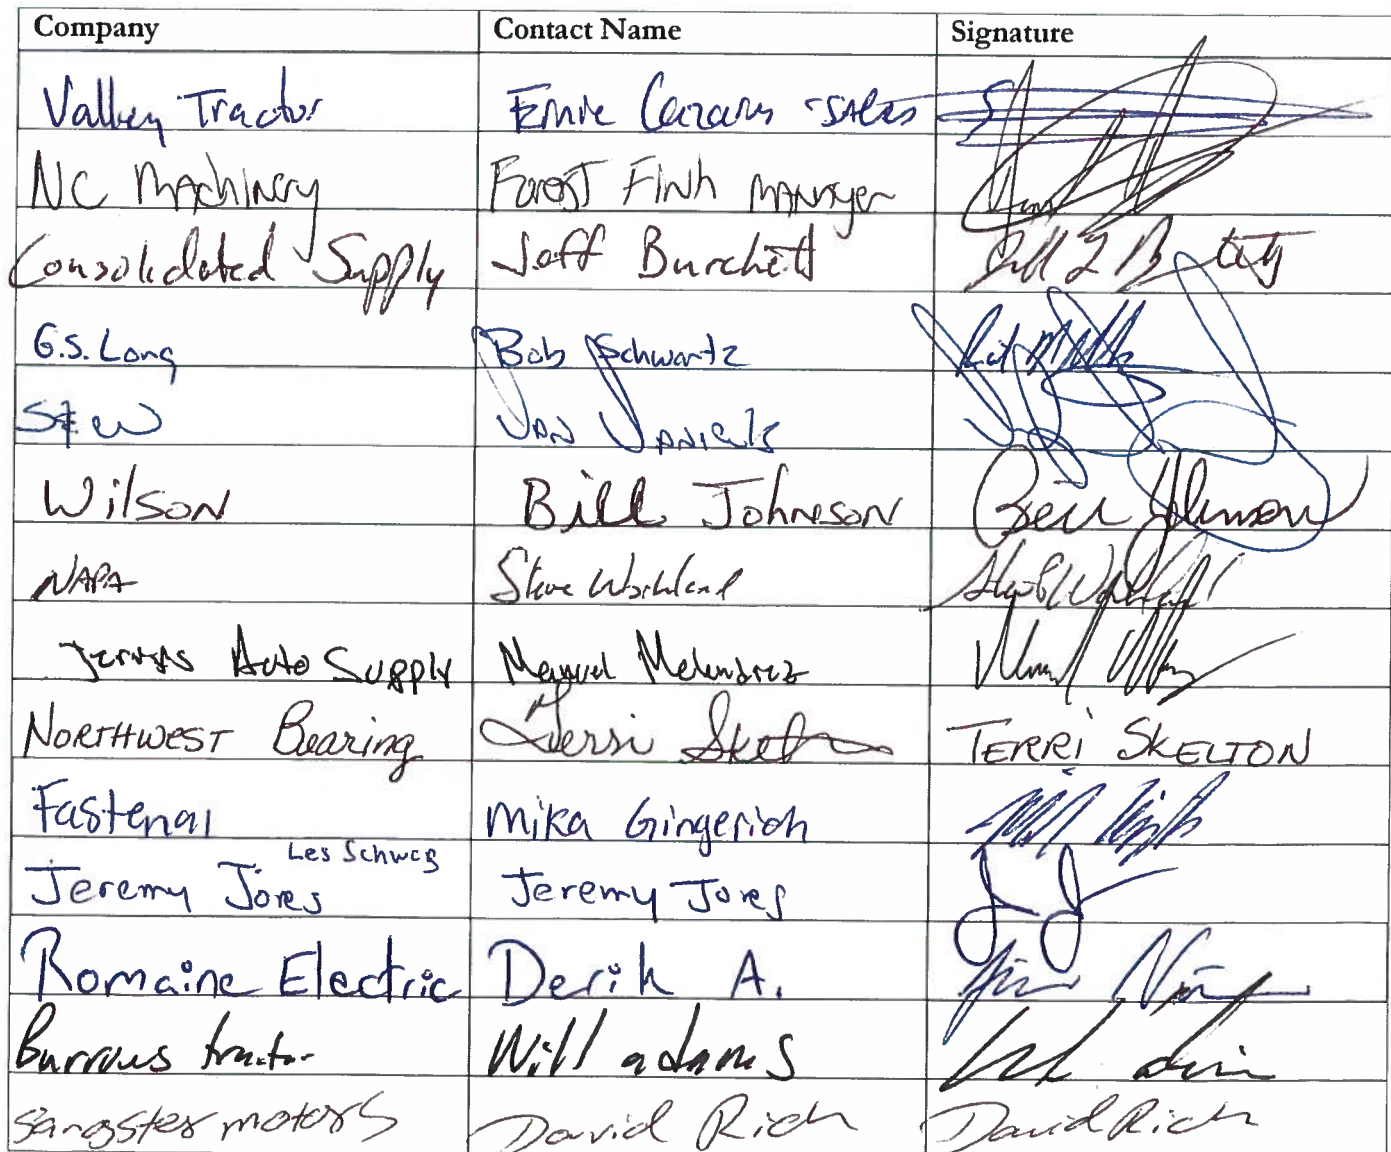 Company Contact Name Signature
Valley Tractor Ernie -SALES
NC MAchinery Forest Finh MANAger
Consolidated Supply Jeff Burchett
G.S. Long Bob Schwartz
S & W DAN DANiels
WilsoN Bill JohNsoN Bill Johnson
NAPA Steve
Jerrys Auto Supply Manuel Melendrez
NORTHWEST Bearing Terri Skelton TERRI SKELTON
Fastenal Mika Gingerich
Les Schwab
Jeremy Jores Jeremy Jores
Romaine Electric Derik A.
Burrows tractor Will adams
Sangster motors David Rich David Rich